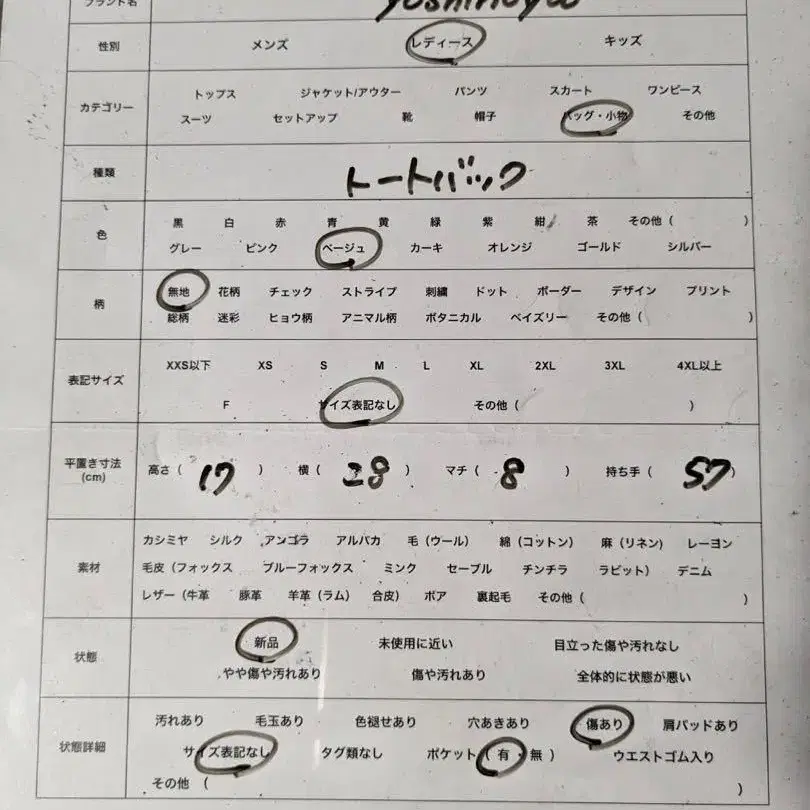 ブランド名 yoshinoya
性別 メンズ レディース キッズ
トップス ジャケット/アウター パンツ スカート ワンピース
カテゴリー
スーツ セットアップ 靴 帽子 バッグ・小物 その他
種類 トートバック
黒 白 赤 青 黄 緑 紫 紺 茶 その他 ( )
色
グレー ピンク ベージュ カーキ オレンジ ゴールド シルバー
無地 花柄 チェック ストライプ 刺繍 ドット ボーダー デザイン プリント
柄
総柄 迷彩 ヒョウ柄 アニマル柄 ボタニカル ペイズリー その他 ( )
XXS以下 XS S M L XL 2XL 3XL 4XL以上
表記サイズ
F サイズ表記なし その他 ( )
平置き寸法
(cm)
高さ ( 17 ) 横 ( 28 ) マチ ( 8 ) 持ち手 ( 57 )
カシミヤ シルク アンゴラ アルパカ 毛 (ウール) 綿 (コットン) 麻 (リネン) レーヨン
素材 毛皮 (フォックス ブルーフォックス ミンク セーブル チンチラ ラビット) デニム
レザー (牛革 豚革 羊革 (ラム) 合皮) ボア 裏起毛 その他 ( )
新品 未使用に近い 目立った傷や汚れなし
状態
やや傷や汚れあり 傷や汚れあり 全体的に状態が悪い
汚れあり 毛玉あり 色褪せあり 穴あきあり 傷あり 肩パッドあり
状態詳細 サイズ表記なし タグ類なし ポケット ( 有・無 ) ウエストゴム入り
その他 ( )